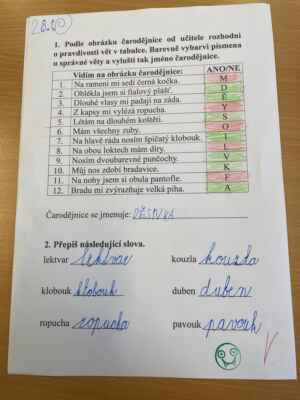 1. Podle obrázku čarodějnice od učitele rozhodni
o pravdivosti vět v tabulce. Barevně vybarvi písmena
u správné věty a vylušti tak jméno čarodějnice.
Vidím na obrázku čarodějnice: ANO/NE
1. Na rameni mi sedí černá kočka. M
2. Oblékla jsem si fialový plášť. D
3. Dlouhé vlasy mi padají na záda.
4. Z kapsy mi vylézá ropucha. Y
5. Létám na dlouhém koštěti. S
6. Mám všechny zuby. O
7. Na hlavě ráda nosím špičatý klobouk. I
8. Na obou loktech mám díry. L
9. Nosím dvoubarevné punčochy. V
10. Můj nos zdobí bradavice. K
11. Na nohy jsem si obula pantofle. F
12. Bradu mi zvýrazňuje velká piha. A
Čarodějnice se jmenuje: DĚSIVKA
2. Přepiš následující slova.
lektvar lektvar kouzla kouzla
klobouk klobouk duben duben
ropucha ropucha pavouk pavouk